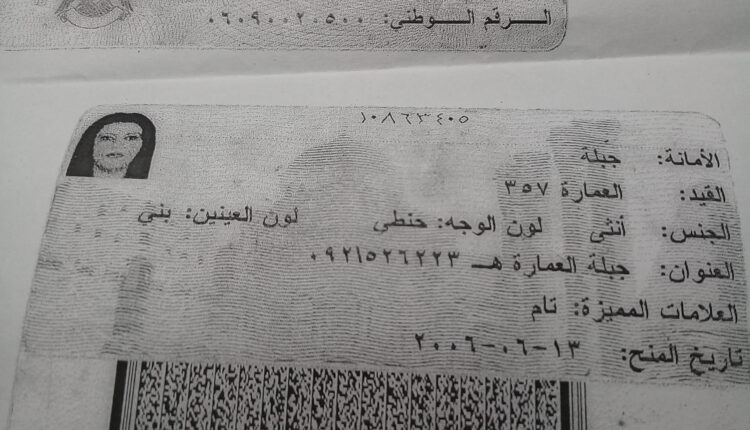 الرقم الوطني: ٠٦٠٩٠٠٢٠٥٠٠
١٠٨٦٣٤٠٥
الأمانة: جبلة
القيد: العمارة ٣٥٧
الجنس: أنثى لون الوجه: حنطي لون العينين: بني
العنوان: جبلة العمارة هـ ٠٩٢١٥٢٦٢٢٣
العلامات المميزة: تام
تاريخ المنح: ١٣-٠٦-٢٠٠٦